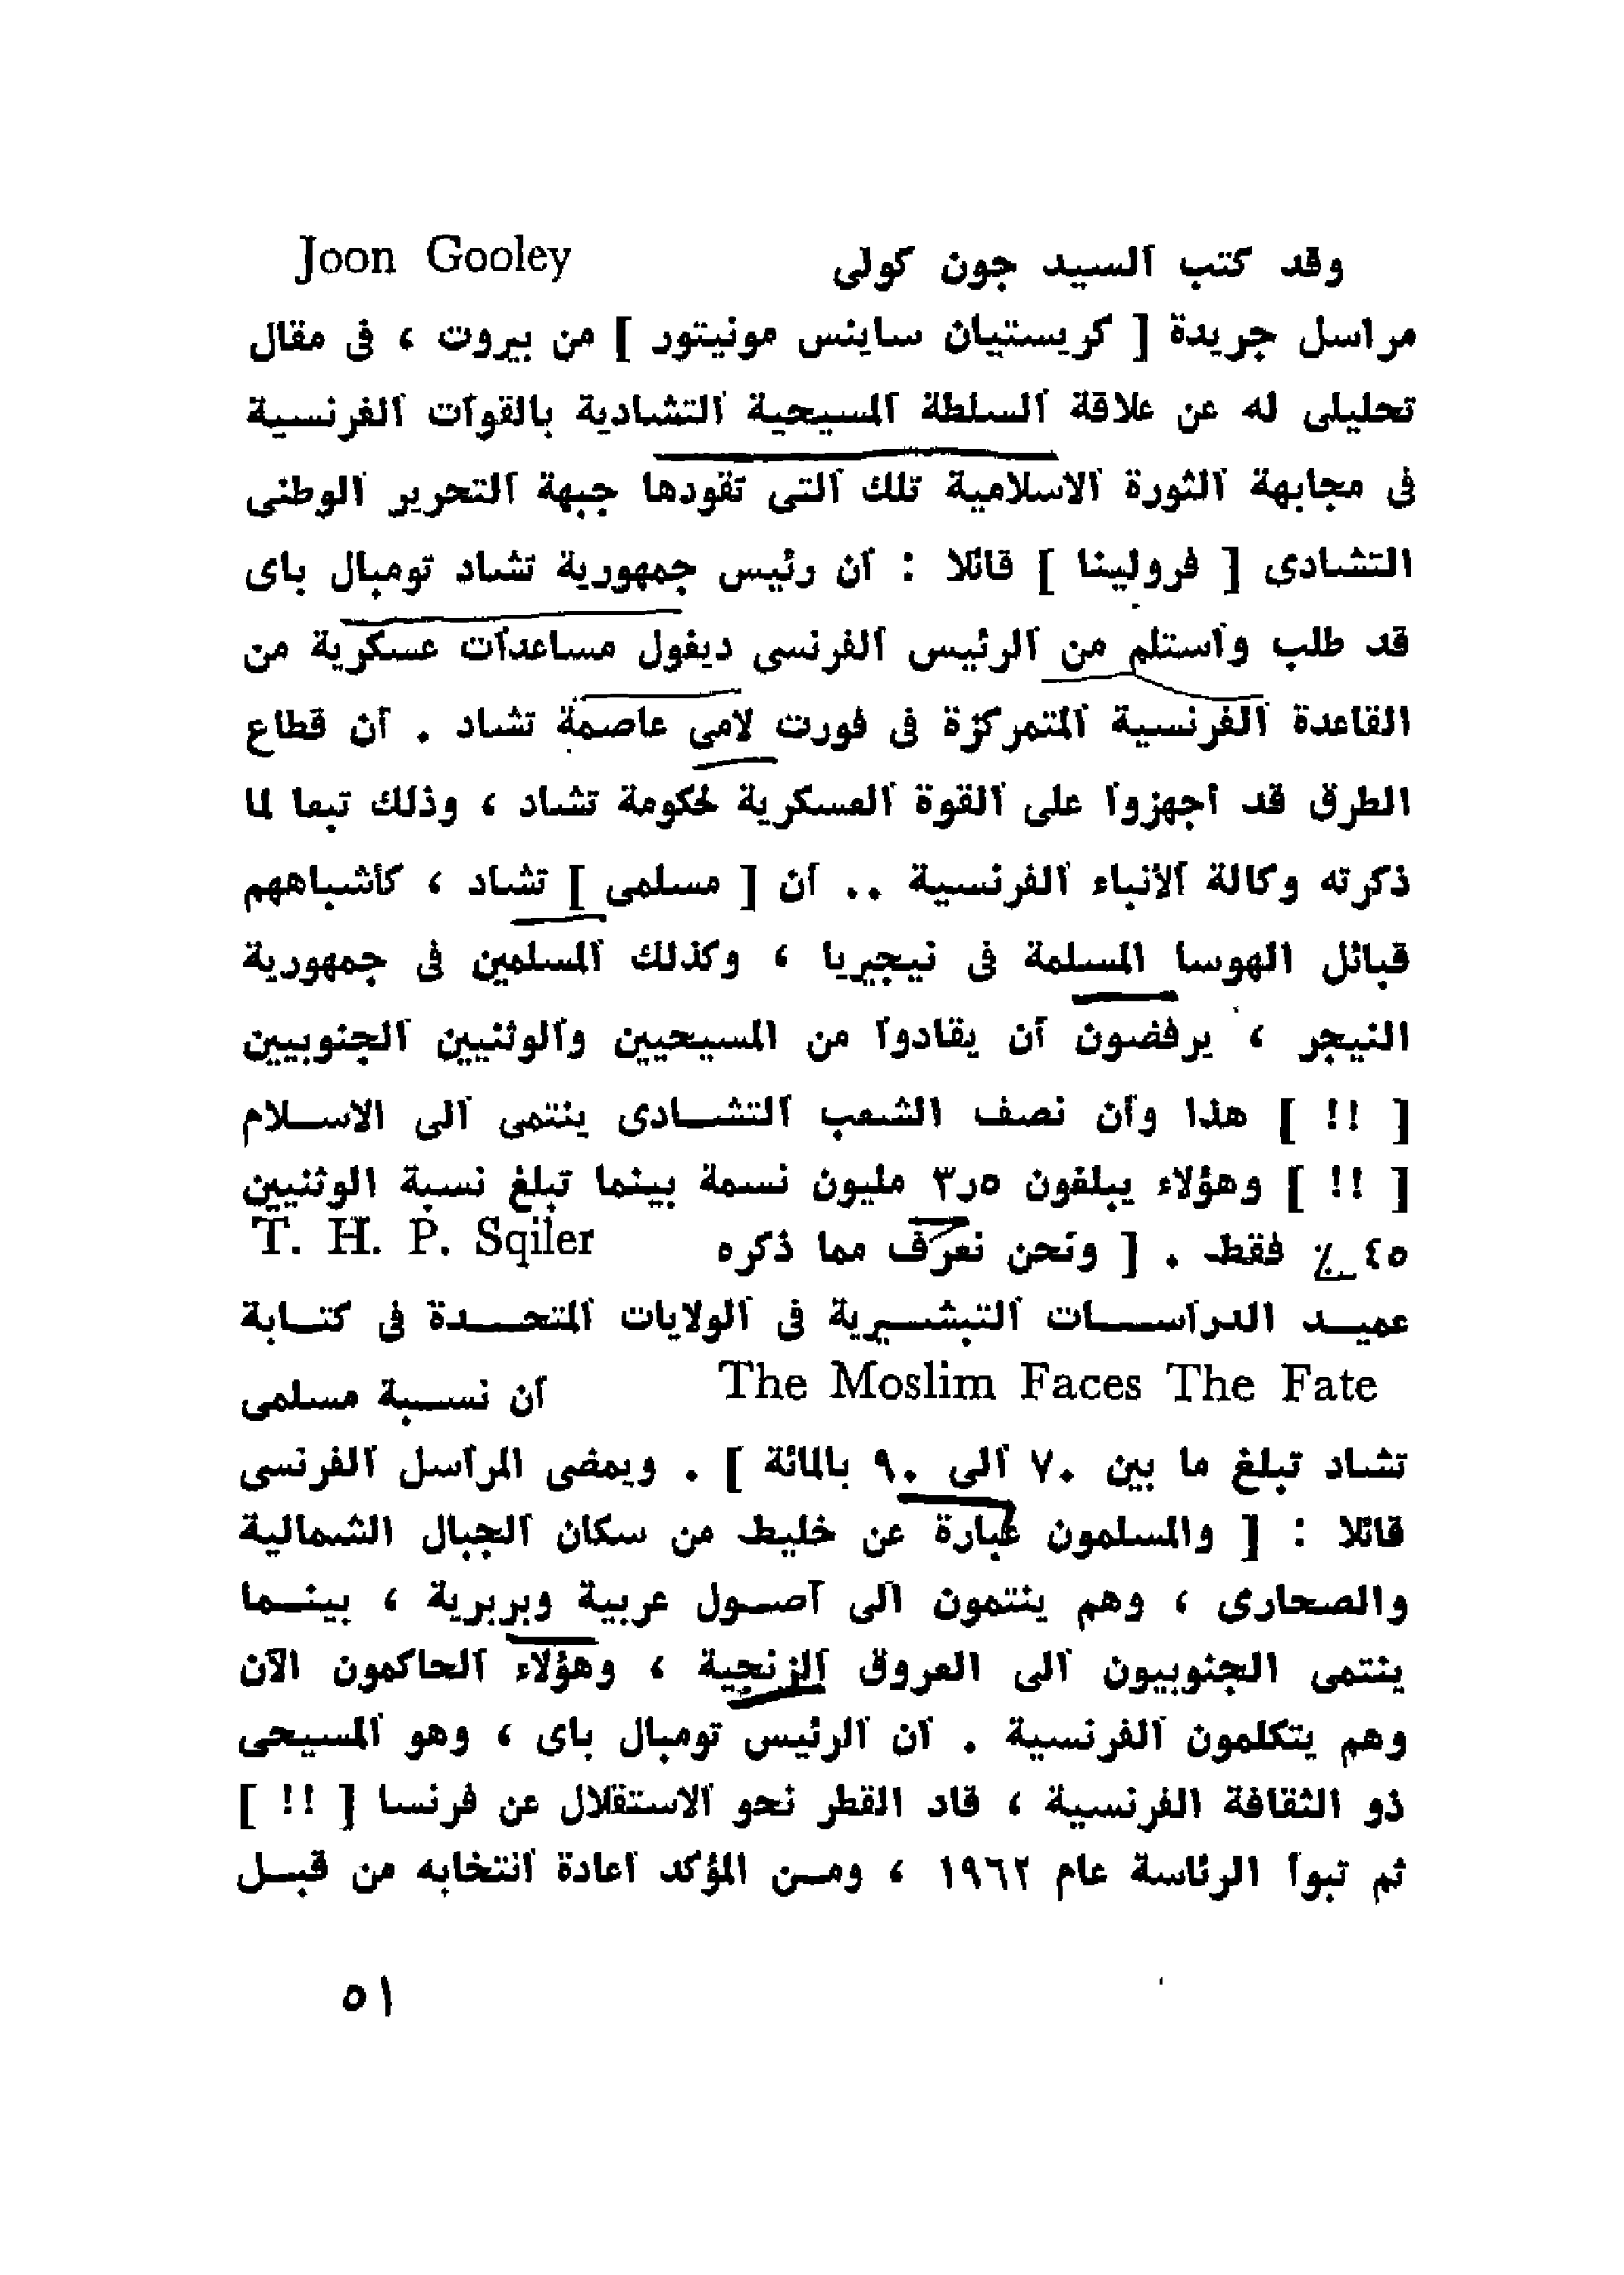 وقد كتب السيد جون كولى Joon Gooley
مراسل جريدة [ كريستيان ساينس مونيتور ] من بيروت ، فى مقال
تحليلى له عن علاقة السلطة المسيحية التشادية بالقوات الفرنسية
فى مجابهة الثورة الاسلامية تلك التى تقودها جبهة التحرير الوطنى
التشادى [ فرولينا ] قائلا : ان رئيس جمهورية تشاد تومبال باى
قد طلب واستلم من الرئيس الفرنسى ديغول مساعدات عسكرية من
القاعدة الفرنسية المتمركزة فى فورت لامى عاصمة تشاد . ان قطاع
الطرق قد اجهزوا على القوة العسكرية لحكومة تشاد ، وذلك تبعا لما
ذكرته وكالة الانباء الفرنسية .. ان [ مسلمى ] تشاد ، كأشباههم
قبائل الهوسا المسلمة فى نيجيريا ، وكذلك المسلمين فى جمهورية
النيجر ، يرفضون ان يقادوا من المسيحيين والوثنيين الجنوبيين
[ !! ] هذا وان نصف الشعب التشادى ينتمى الى الاسلام
[ !! ] وهؤلاء يبلغون ٣ر٥ مليون نسمة بينما تبلغ نسبة الوثنيين
٤٥ ٪ فقط . [ ونحن نعرف مما ذكره T. H. P. Sqiler
عميد الدراسات التبشيرية فى الولايات المتحدة فى كتابة
The Moslim Faces The Fate ان نسبة مسلمى
تشاد تبلغ ما بين ٧٠ الى ٩٠ بالمائة ] . ويمضى المراسل الفرنسى
قائلا : [ والمسلمون عبارة عن خليط من سكان الجبال الشمالية
والصحارى ، وهم ينتمون الى اصول عربية وبربرية ، بينما
ينتمى الجنوبيون الى العروق الزنجية ، وهؤلاء الحاكمون الآن
وهم يتكلمون الفرنسية . ان الرئيس تومبال باى ، وهو المسيحى
ذو الثقافة الفرنسية ، قاد القطر نحو الاستقلال عن فرنسا [ !! ]
ثم تبوأ الرئاسة عام ١٩٦٢ ، ومن المؤكد اعادة انتخابه من قبل
٥١